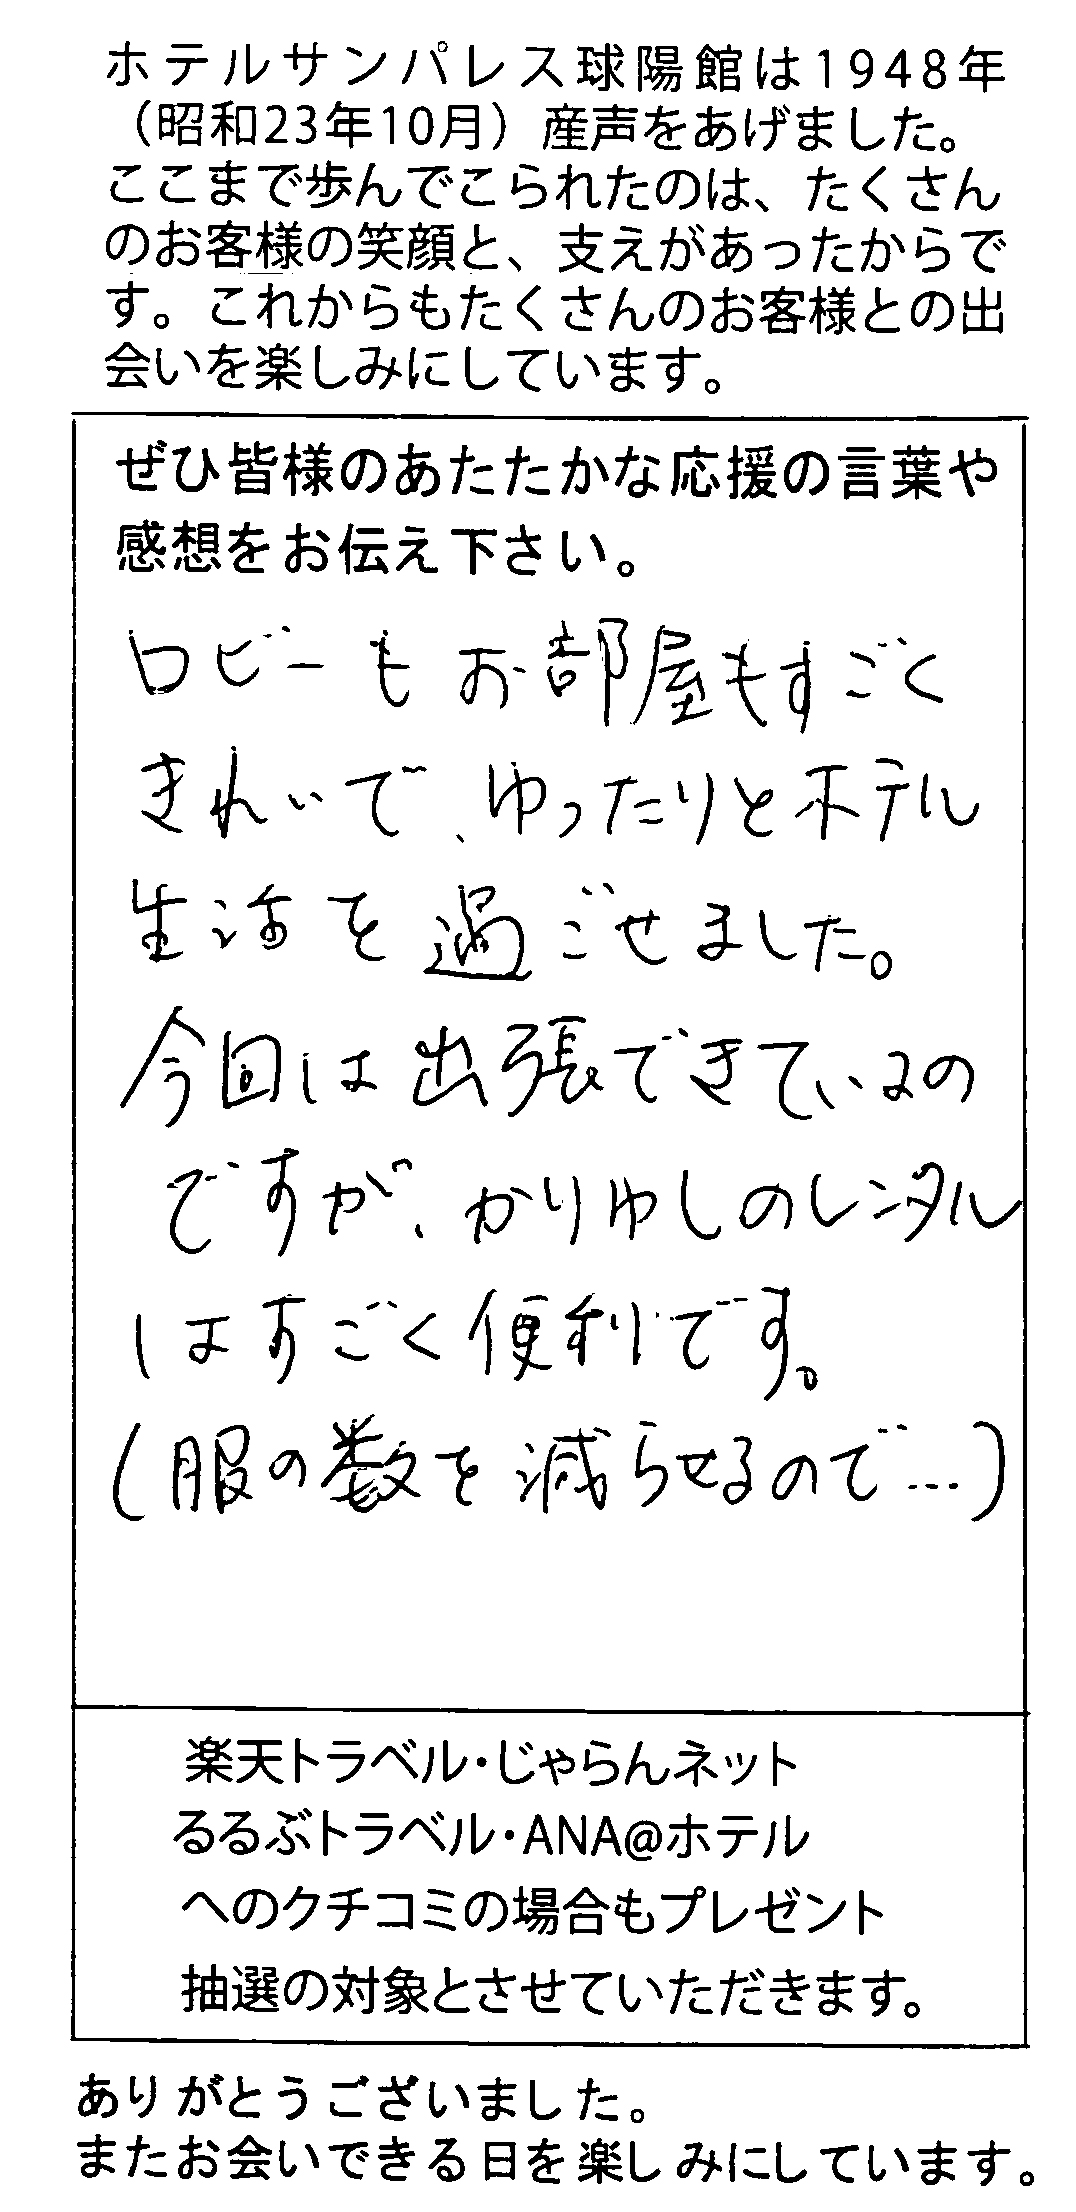 ホテルサンパレス球陽館は1948年
（昭和23年10月）産声をあげました。
ここまで歩んでこられたのは、たくさん
のお客様の笑顔と、支えがあったからで
す。これからもたくさんのお客様との出
会いを楽しみにしています。
ぜひ皆様のあたたかな応援の言葉や
感想をお伝え下さい。
ロビーもお部屋もすごく
きれいで、ゆったりとホテル
生活を過ごせました。
今回は出張できているの
ですが、かりゆしのレンタル
はすごく便利です。
(服の数を減らせるので…)
楽天トラベル・じゃらんネット
るるぶトラベル・ANA@ホテル
へのクチコミの場合もプレゼント
抽選の対象とさせていただきます。
ありがとうございました。
またお会いできる日を楽しみにしています。